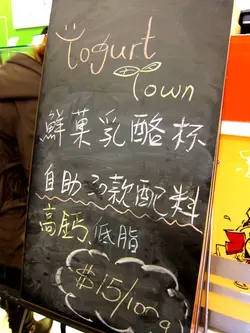 Yogurt
Town
鮮菓乳酪杯
自助多款配料
高鈣、低脂
$15/100g